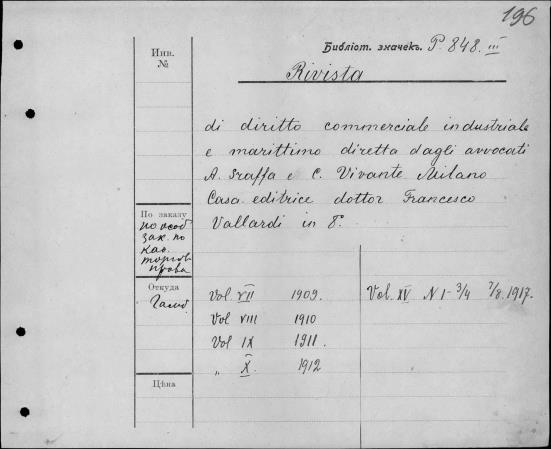 196
Библіот. значекъ. P. 848. III
Инв.
№
Rivista
di diritto commerciale industriale
e marittimo diretta dagli avvocati
A. Sraffa e C. Vivante Milano
Casa editrice dottor Francesco
Vallardi in 8°.
По заказу
по особ
зак. по
каѳ.
торгов
права
Откуда
Vol. VII 1909.
Vol VIII 1910
Vol IX 1911.
„ X. 1912
Vol. XV N 1-3/4 7/8. 1917.
Цѣна